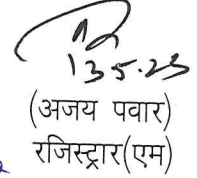 13.5.23
(अजय पवार)
रजिस्ट्रार(एम)